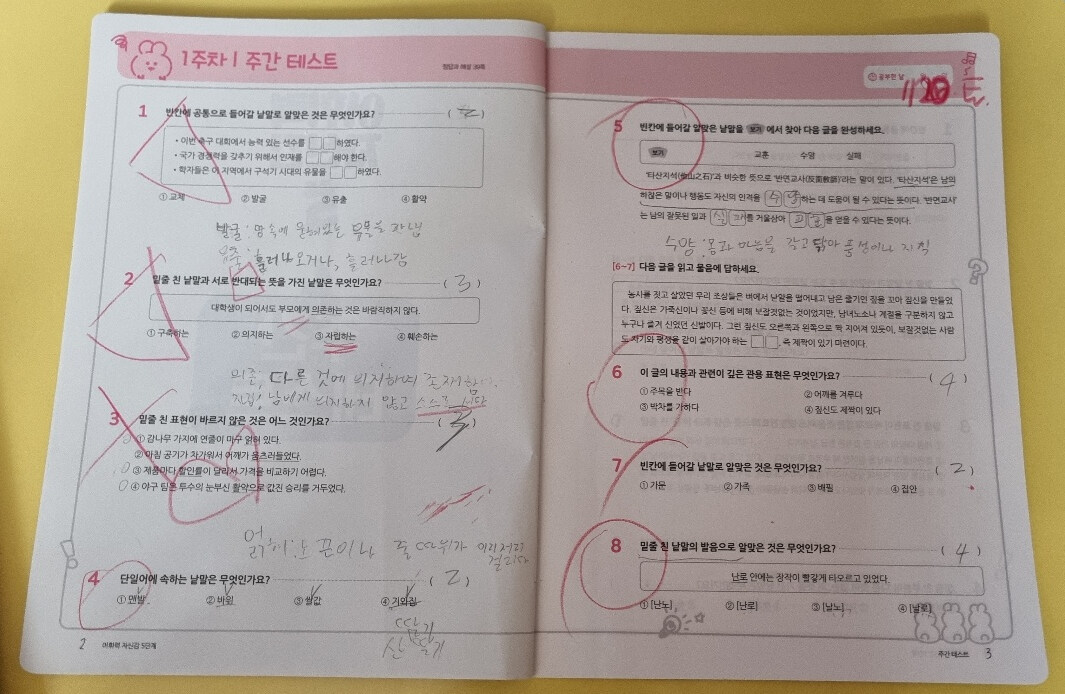 1주차 | 주간 테스트
정답과 해설 39쪽
1 빈칸에 공통으로 들어갈 낱말로 알맞은 것은 무엇인가요? ( 2 )
• 이번 축구 대회에서 능력 있는 선수를 □□하였다.
• 국가 경쟁력을 갖추기 위해서 인재를 □□해야 한다.
• 학자들은 이 지역에서 구석기 시대의 유물을 □□하였다.
① 교체 ② 발굴 ③ 유출 ④ 활약
발굴: 땅속에 묻혀있는
흘러나오거나, 흘러나감
2 밑줄 친 낱말과 서로 반대되는 뜻을 가진 낱말은 무엇인가요? ( 3 )
대학생이 되어서도 부모에게 의존하는 것은 바람직하지 않다.
① 구축하는 ② 의지하는 ③ 자립하는 ④ 훼손하는
의존: 다른 것에 의지하여 존재함
남에게 의지하지 않고 스스로
3 밑줄 친 표현이 바르지 않은 것은 어느 것인가요?
① 감나무 가지에 연줄이 마구 얽혀 있다.
② 아침 공기가 차가워서 어깨가 움츠러들었다.
③ 제품마다 할인률이 달라서 가격을 비교하기 어렵다.
④ 야구 팀은 투수의 눈부신 활약으로 값진 승리를 거두었다.
끈이나 줄 따위가 이리저리
걸리다
4 단일어에 속하는 낱말은 무엇인가요? ( 2 )
① 맨발 ② 바위 ③ 쌀값 ④ 기와집
산딸기
2 어휘력 자신감 5단계
공부한 날
11/20
5 빈칸에 들어갈 알맞은 낱말을 보기 에서 찾아 다음 글을 완성하세요.
보기 교훈 수양 실패
'타산지석(他山之石)'과 비슷한 뜻으로 '반면교사(反面敎師)'라는 말이 있다. '타산지석'은 남의
하찮은 말이나 행동도 자신의 인격을 수양하는 데 도움이 될 수 있다는 뜻이다. '반면교사'
는 남의 잘못된 일과 실패를 거울삼아 교훈을 얻을 수 있다는 뜻이다.
수양: 몸과 마음을 갈고 닦아 품성이나 지식
[6~7] 다음 글을 읽고 물음에 답하세요.
농사를 짓고 살았던 우리 조상들은 벼에서 낟알을 떨어내고 남은 줄기인 짚을 꼬아 짚신을 만들었
다. 짚신은 가죽신이나 꽃신 등에 비해 보잘것없는 것이었지만, 남녀노소나 계절을 구분하지 않고
누구나 즐겨 신었던 신발이다. 그런 짚신도 오른쪽과 왼쪽으로 짝 지어져 있듯이, 보잘것없는 사람
도 자기와 평생을 같이 살아가야 하는 □□, 즉 제짝이 있기 마련이다.
6 이 글의 내용과 관련이 깊은 관용 표현은 무엇인가요? ( 4 )
① 주목을 받다 ② 어깨를 겨루다
③ 박차를 가하다 ④ 짚신도 제짝이 있다
7 빈칸에 들어갈 낱말로 알맞은 것은 무엇인가요? ( 2 )
① 가문 ② 가족 ③ 배필 ④ 집안
8 밑줄 친 낱말의 발음으로 알맞은 것은 무엇인가요? ( 4 )
난로 안에는 장작이 빨갛게 타오르고 있었다.
① [난노] ② [난로] ③ [날노] ④ [날로]
주간 테스트 3